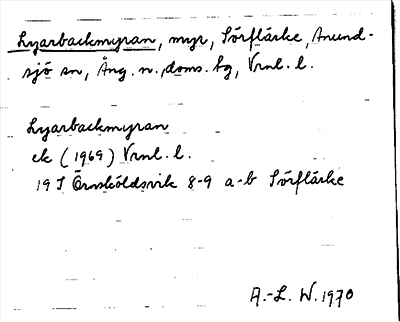 Lyarbackmyran, myr, Sörflärke, Anund-
sjö sn, Ång. n. doms. bg, Vrnl. l.
Lyarbackmyran
ek (1969) Vrnl. l.
19 I Örnsköldsvik 8-9 a-b Sörflärke
A.-L. W. 1970